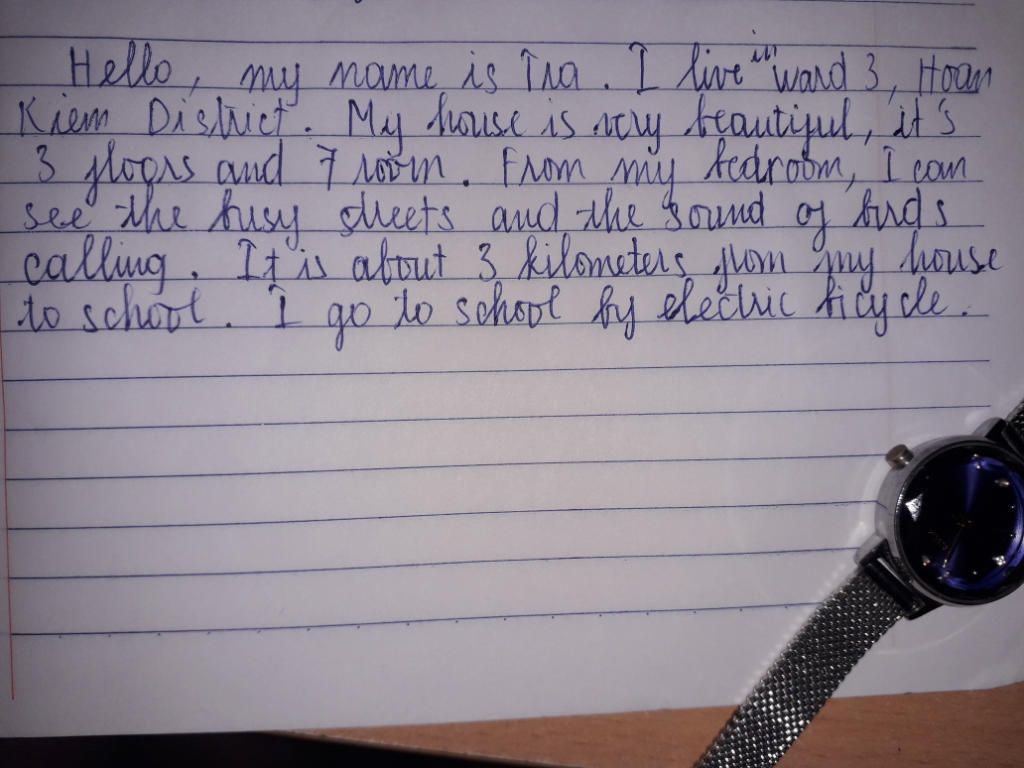 Hello, my name is Tra. I live in ward 3, Hoan
Kiem District. My house is very beautiful, it's
3 floors and 7 room. From my bedroom, I can
see the busy streets and the sound of birds
calling. It is about 3 kilometers from my house
to school. I go to school by electric bicycle.